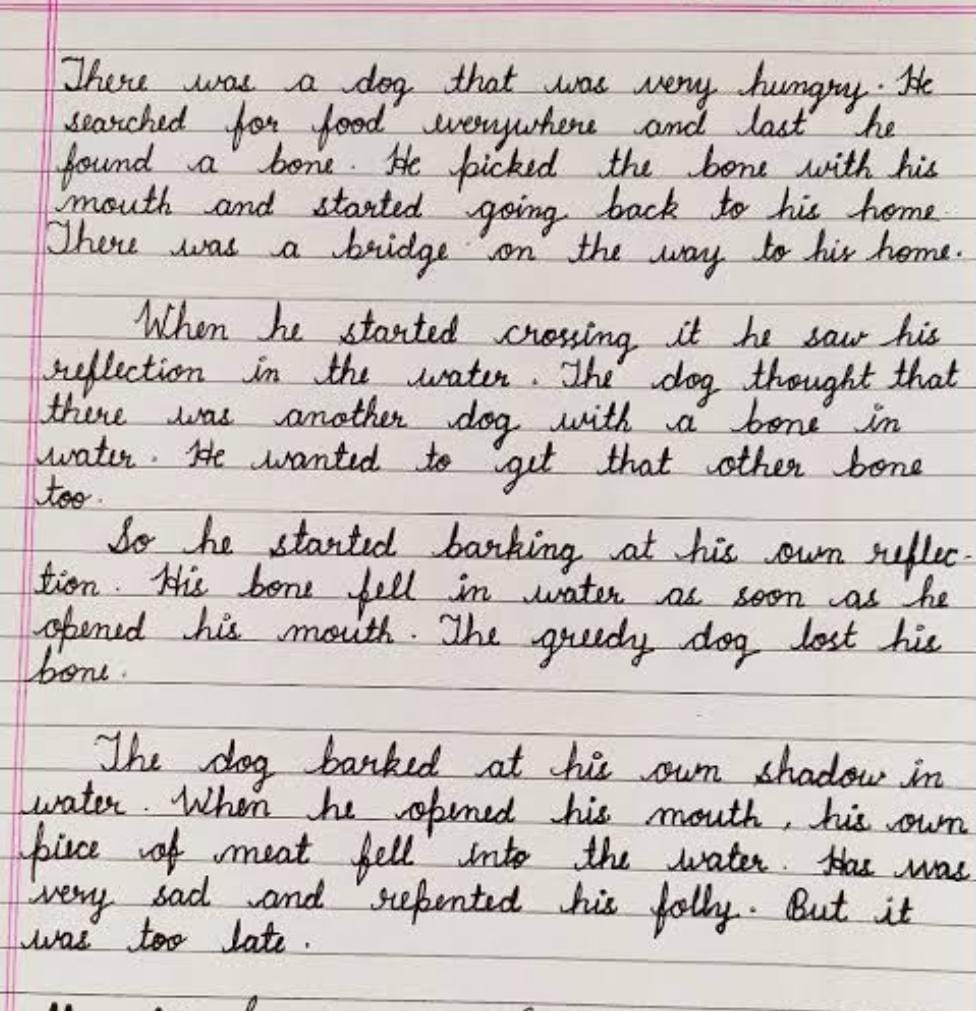 There was a dog that was very hungry. He
searched for food everywhere and last he
found a bone. He picked the bone with his
mouth and started going back to his home.
There was a bridge on the way to his home.
When he started crossing it he saw his
reflection in the water. The dog thought that
there was another dog with a bone in
water. He wanted to get that other bone
too.
So he started barking at his own reflec-
tion. His bone fell in water as soon as he
opened his mouth. The greedy dog lost his
bone.
The dog barked at his own shadow in
water. When he opened his mouth, his own
piece of meat fell into the water. Has was
very sad and repented his folly. But it
was too late.